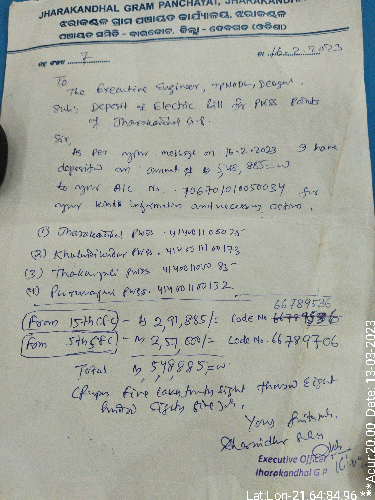 JHARAKANDHAL GRAM PANCHAYAT, JHARAKANDH
ଝରାକନ୍ଧଲ ଗ୍ରାମ ପଞ୍ଚାୟତ କାର୍ଯ୍ୟାଳୟ, ଝରାକନ୍ଧଲ
ପଞ୍ଚାୟତ ସମିତି - ବାରକୋଟ, ଜିଲ୍ଲା - ଦେବଗଡ଼ (ଓଡିଶା)
7 16.2.2023
To
The Executive Engineer, TPNODL, Deogarh
Sub: Deposit of Electric bill for PWSS points
of Jharakandhal G.P.
Sir,
As per your message on 16-2-2023 I have
deposited an amount of Rs 5,48,885=00
to your A/C No. 706701010050034 for
your kind information and necessary action.
(1) Jharakandhal PWSS.
(2) PWSS.
(3) PWSS
(4) PWSS. 414001100132
66789526
From 15th CFC - Rs 2,91,885/- Code No
From 5th SFC - Rs 2,57,000/- Code No. 66789706
Total Rs 548885=00
(Rupees five lakh forty eight thousand eight
hundred eighty five only.
Yours faithfully,
Executive Officer
Jharakandhal G.P
Lat Lon-21.64:84.96 ***Acur:20.00 Date:13-03-2023